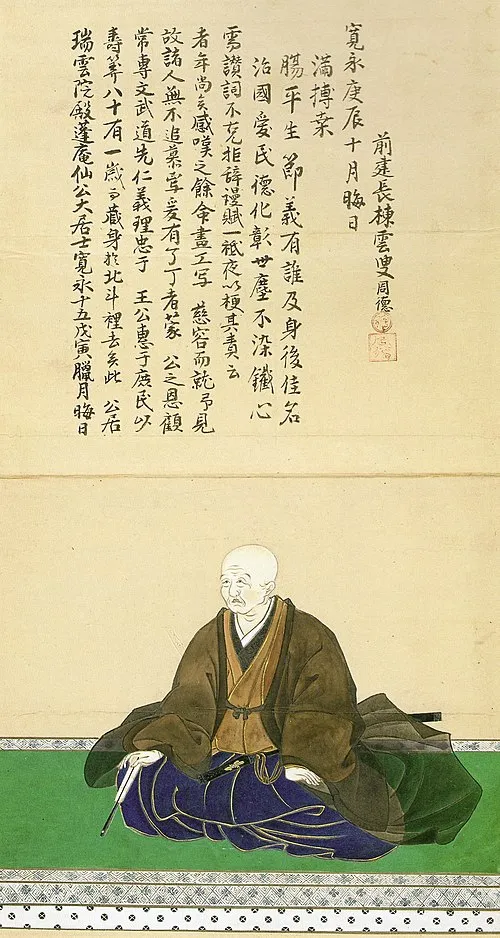 瑞雲院殿蓬庵仙公大居士寛永十五戊寅臘月晦日
壽筭八十有一歳而藏身於北斗裡去矣此 公居
常専文武道先仁義理忠于 王公惠于庶民以
故諸人無不追慕焉爰有了丁者蒙 公之恩顧
者年尚矣感嘆之餘命畫工写 慈容而就予見
需讃詞不克拒辞謾賦一祇夜以梗其責云
治國愛民徳化彰世塵不染鐵心
腸平生節義有誰及身後佳名
滿搏桒
寛永庚辰十月晦日
前建長棟雲叟周徳